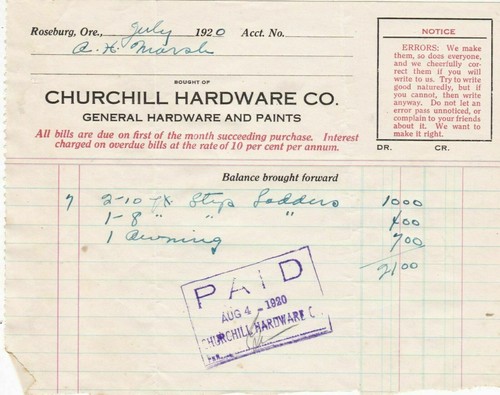 Roseburg, Ore., July 1920 Acct. No.
A. H. Marsh
BOUGHT OF
CHURCHILL HARDWARE CO.
GENERAL HARDWARE AND PAINTS
All bills are due on first of the month succeeding purchase. Interest
charged on overdue bills at the rate of 10 per cent per annum.
NOTICE
ERRORS: We make
them, so does everyone,
and we cheerfully cor-
rect them if you will
write to us. Try to write
good naturedly, but if
you cannot, then write
anyway. Do not let an
error pass unnoticed, or
complain to your friends
about it. We want to
make it right.
DR. CR.
Balance brought forward
7 2-10 ft. Step Ladders 1000
1-8 " " " 400
1 Awning 700
2100
PAID
AUG 4-1920
CHURCHILL HARDWARE C
PER